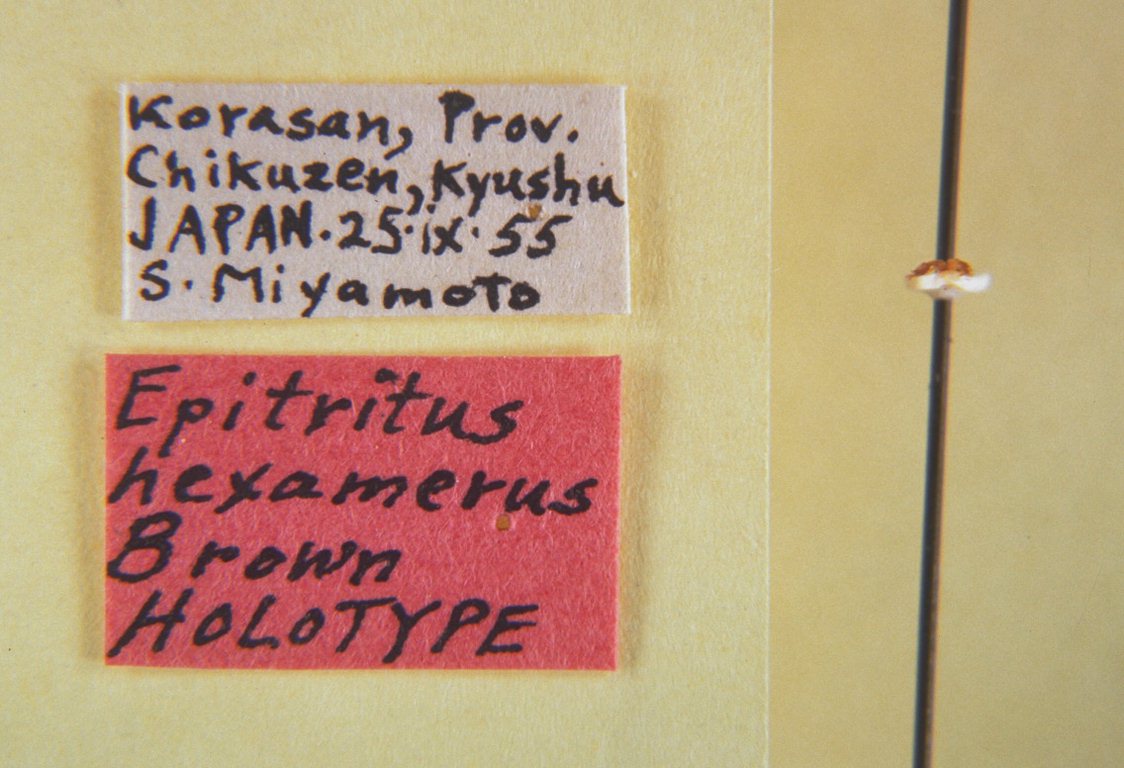 Korasan, Prov.
Chikuzen, Kyushu
JAPAN. 25·ix·55
S. Miyamoto
Epitritus
hexamerus
Brown
HOLOTYPE